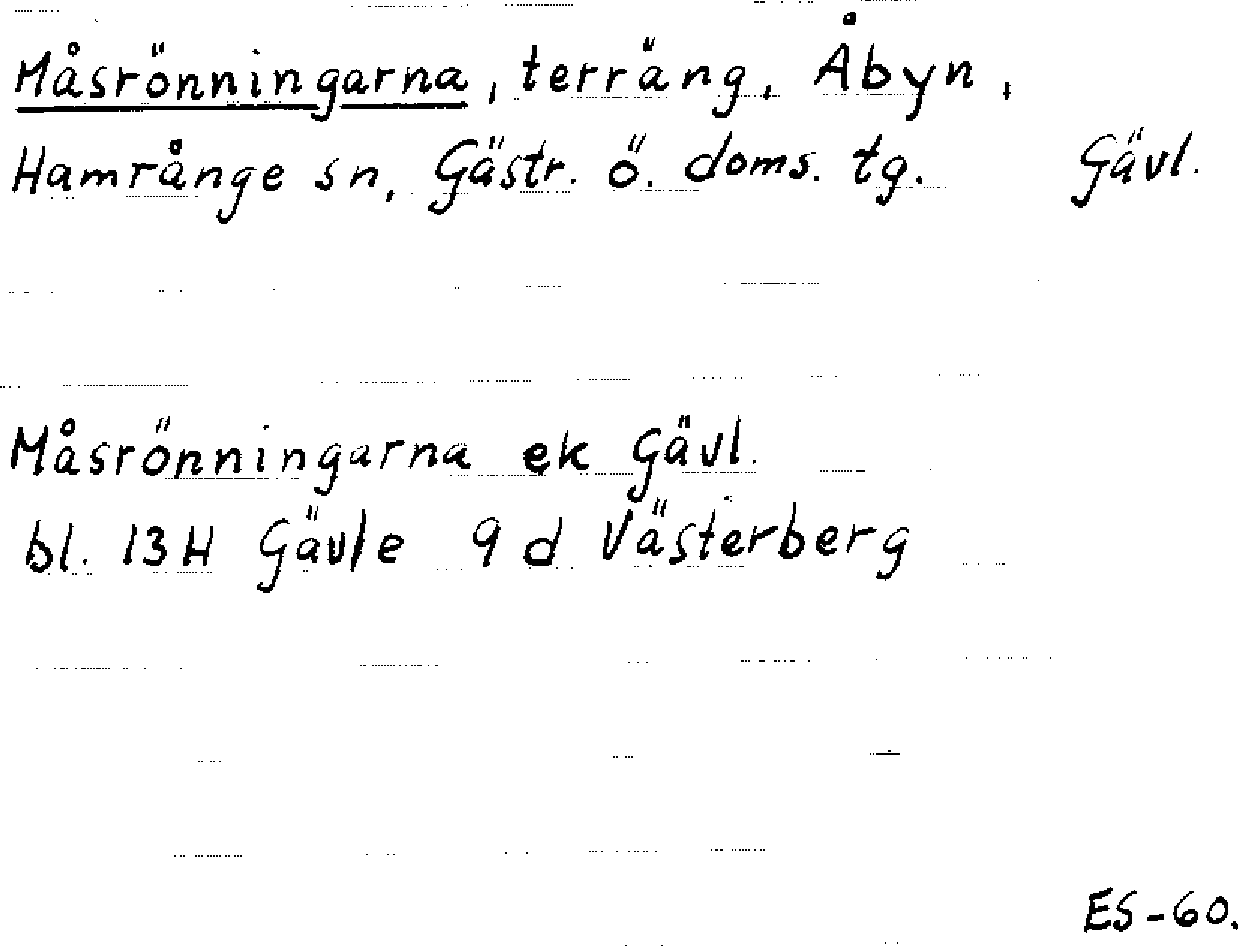 Måsrönningarna, terräng, Åbyn,
Hamrånge sn, Gästr. ö. doms. tg. Gävl.
Måsrönningarna ek Gävl.
bl. 13H Gävle 9d Västerberg
ES-60.